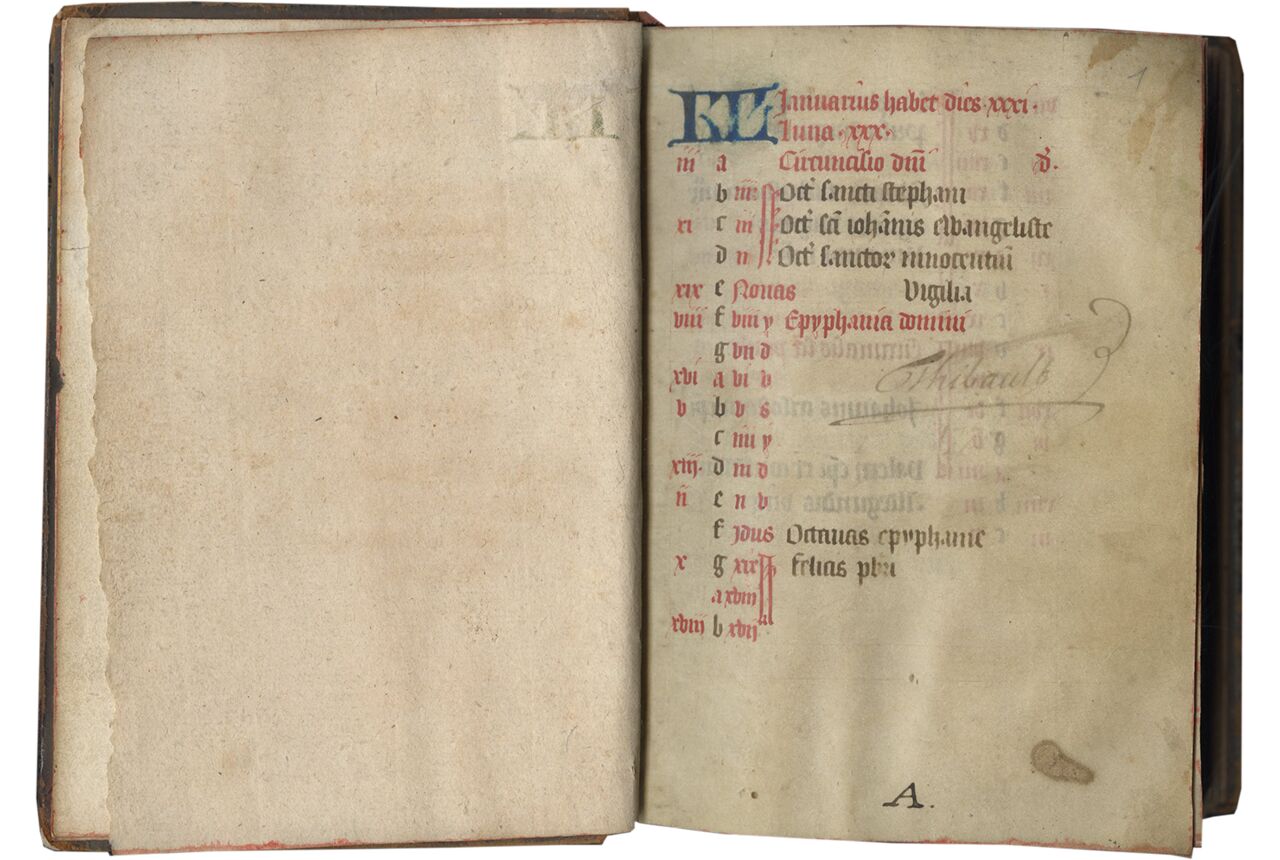 1
KL Januarius habet dies·xxxi·
luna·xxx·
iii a Circuncisio dni d.
b iiii Oct sancti stephani
xi c iii Oct sci iohanis ewangeliste
d ii Oct sanctor innocentum
xix e Nonas Vigilia
viii f viii y Epyphania domini
g vii d
xvi a vi v
Thibault
v b v s
c iiii y
xiii· d iii d
ii e ii v
f Idus Octauas epyphanie
x g xix felicis pbri
a xviii
xviii b xvii
A.